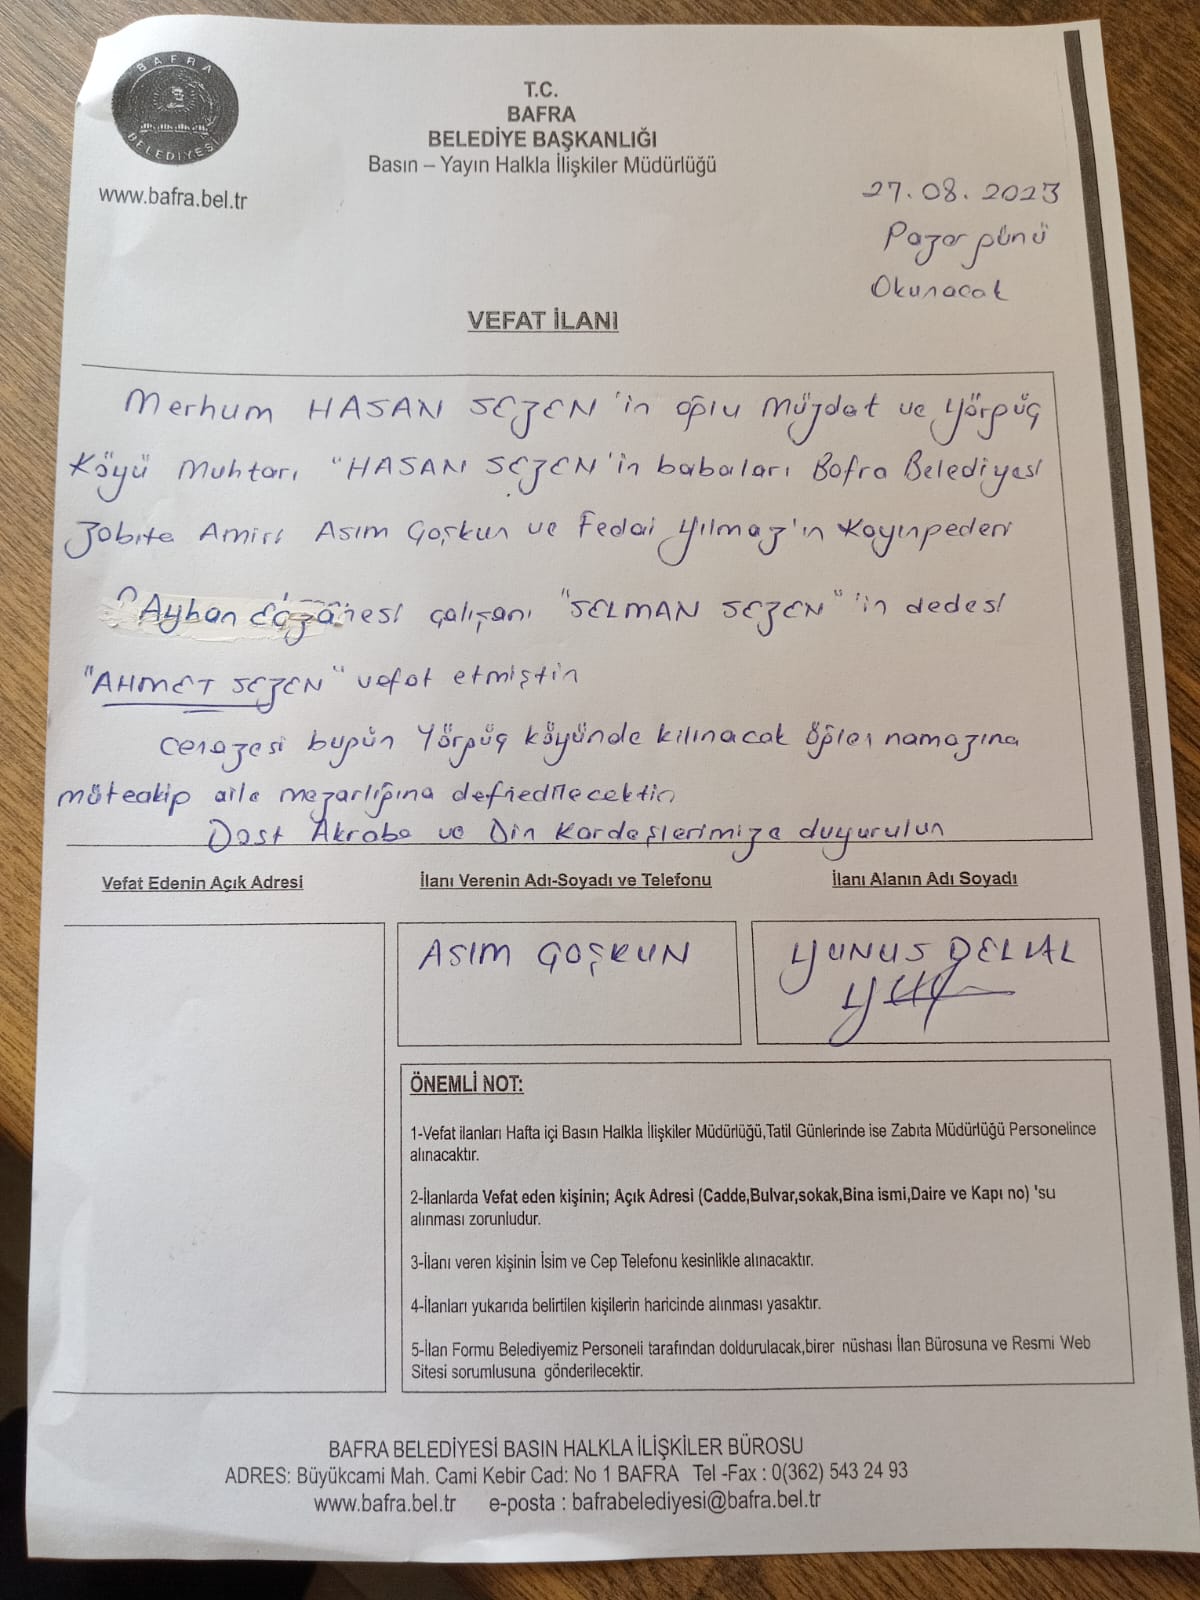 BAFRA
BELEDİYESİ
www.bafra.bel.tr
T.C.
BAFRA
BELEDİYE BAŞKANLIĞI
Basın – Yayın Halkla İlişkiler Müdürlüğü
27.08.2023
Pazar günü
Okunacak
VEFAT İLANI
Merhum HASAN SEZEN'in oğlu Müjdat ve Yörgüç
Köyü Muhtarı "HASAN SEZEN'in babaları Bafra Belediyesi
Zabıta Amiri Asım Çoşkun ve Fedai Yılmaz'ın Kayınpederi
Ayhan Eczanesi çalışanı "SELMAN SEZEN"'in dedesi
"AHMET SEZEN" vefat etmiştir
Cenazesi bugün Yörgüç köyünde kılınacak öğlen namazına
müteakip aile mezarlığına defnedilecektir
Dost Akraba ve Din Kardeşlerimize duyurulur
Vefat Edenin Açık Adresi
İlanı Verenin Adı-Soyadı ve Telefonu
İlanı Alanın Adı Soyadı
ASIM ÇOŞKUN
YUNUS DELVAL
ÖNEMLİ NOT:
1-Vefat ilanları Hafta içi Basın Halkla İlişkiler Müdürlüğü,Tatil Günlerinde ise Zabıta Müdürlüğü Personelince
alınacaktır.
2-İlanlarda Vefat eden kişinin; Açık Adresi (Cadde,Bulvar,sokak,Bina ismi,Daire ve Kapı no) 'su
alınması zorunludur.
3-İlanı veren kişinin İsim ve Cep Telefonu kesinlikle alınacaktır.
4-İlanları yukarıda belirtilen kişilerin haricinde alınması yasaktır.
5-İlan Formu Belediyemiz Personeli tarafından doldurulacak,birer nüshası İlan Bürosuna ve Resmi Web
Sitesi sorumlusuna gönderilecektir.
BAFRA BELEDİYESİ BASIN HALKLA İLİŞKİLER BÜROSU
ADRES: Büyükcami Mah. Cami Kebir Cad: No 1 BAFRA Tel -Fax : 0(362) 543 24 93
www.bafra.bel.tr e-posta : bafrabelediyesi@bafra.bel.tr